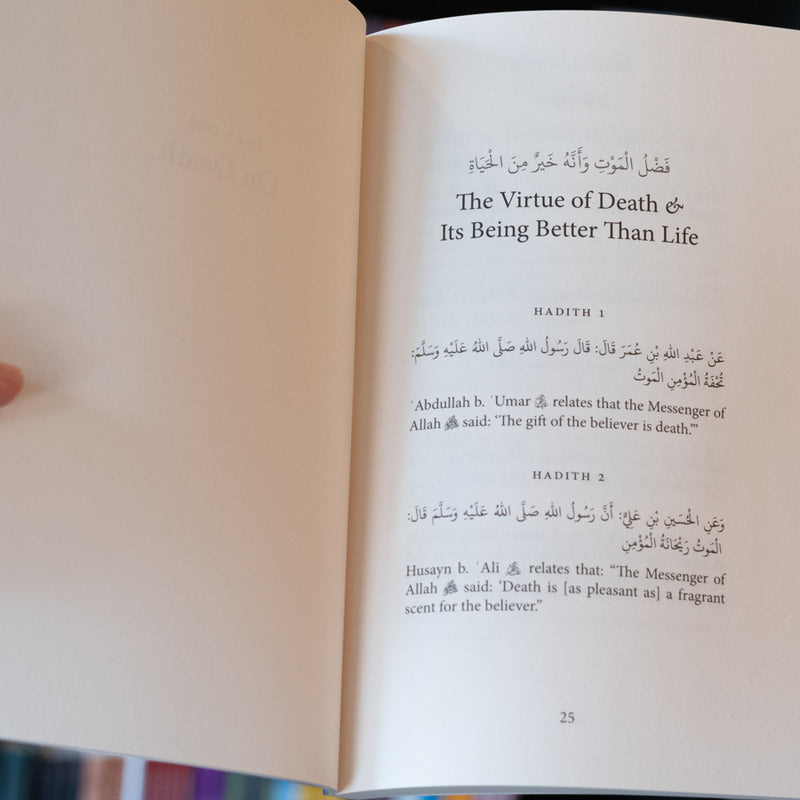 فَضْلُ الْمَوْتِ وَأَنَّهُ خَيْرٌ مِنَ الْحَيَاةِ
The Virtue of Death &
Its Being Better Than Life
HADITH 1
عَنْ عَبْدِ اللهِ بْنِ عُمَرَ قَالَ: قَالَ رَسُولُ اللهِ صَلَّى اللهُ عَلَيْهِ وَسَلَّمَ:
تُحْفَةُ الْمُؤْمِنِ الْمَوتُ
ʿAbdullah b. ʿUmar relates that the Messenger of
Allah ﷺ said: ‘The gift of the believer is death.’”
HADITH 2
وَعَنِ الْحُسَيْنِ بْنِ عَلِيٍّ: أَنَّ رَسُولُ اللهِ صَلَّى اللهُ عَلَيْهِ وَسَلَّمَ قَالَ:
الْمَوتُ رَيْحَانَةُ الْمُؤْمِنِ
Husayn b. ʿAlī relates that: “The Messenger of
Allah ﷺ said: ‘Death is [as pleasant as] a fragrant
scent for the believer.”
25